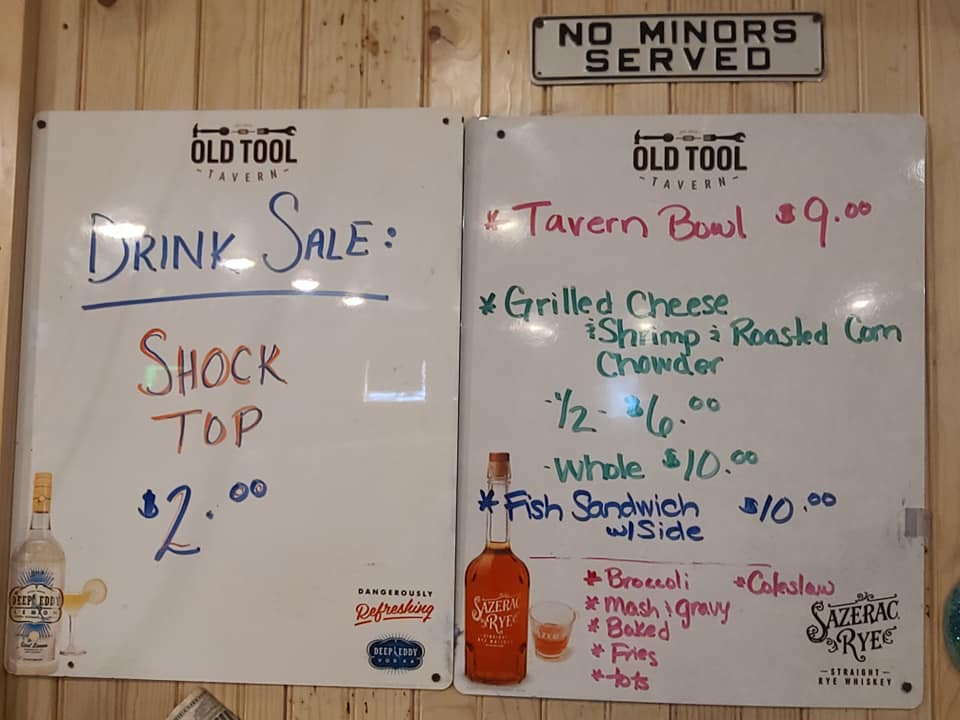 NO MINORS
SERVED
OLD TOOL
-TAVERN-
DRINK SALE:
SHOCK
TOP
$2.00
DEEP EDDY
LEMON
DANGEROUSLY
Refreshing
DEEP EDDY
VODKA
OLD TOOL
-TAVERN-
* Tavern Bowl $9.00
* Grilled Cheese
& Shrimp & Roasted Corn
Chowder
-1/2- $6.00
-Whole $10.00
* Fish Sandwich $10.00
w/Side
* Broccoli *Coleslaw
* Mash & gravy
* Baked
* Fries
* tots
SAZERAC
RYE
SAZERAC
RYE
-STRAIGHT-
RYE WHISKEY